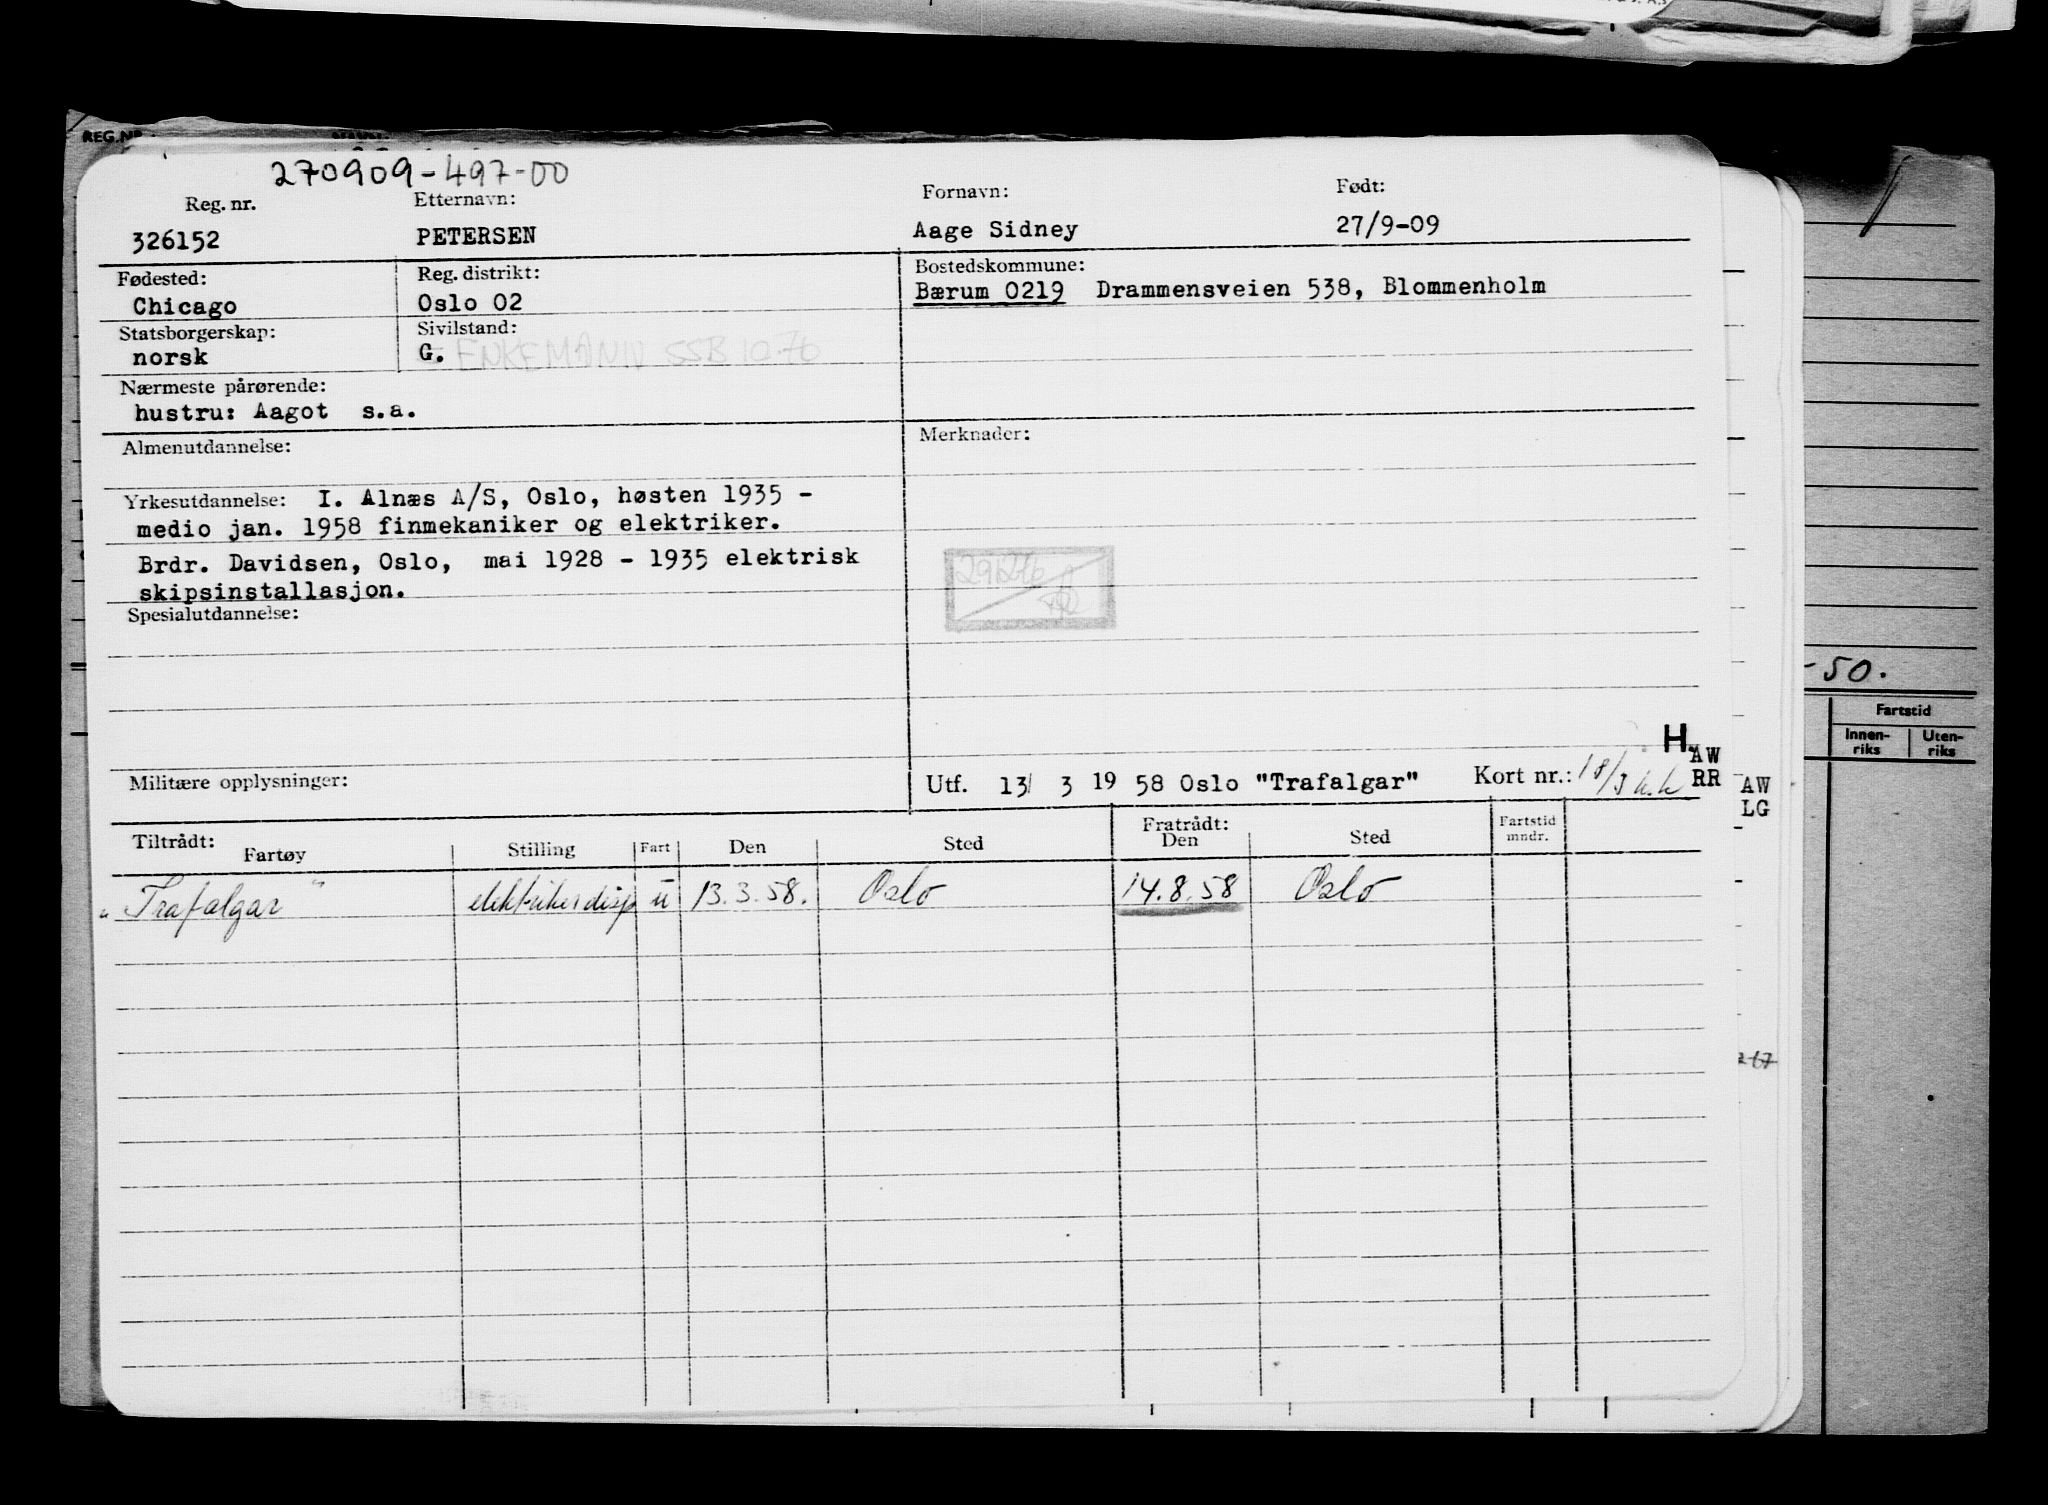 REG.NR.
270909-497-00
Reg. nr. Etternavn: Fornavn: Født:
326152 PETERSEN Aage Sidney 27/9-09
Fødested: Reg. distrikt: Bostedskommune:
Chicago Oslo 02 Bærum 0219 Drammensveien 538, Blommenholm
Statsborgerskap: Sivilstand:
norsk G. ENKEMANN SSB 10.76
Nærmeste pårørende:
hustru: Aagot s.a.
Almenutdannelse: Merknader:
Yrkesutdannelse: I. Alnæs A/S, Oslo, høsten 1935 -
medio jan. 1958 finmekaniker og elektriker.
Brdr. Davidsen, Oslo, mai 1928 - 1935 elektrisk
skipsinstallasjon.
Spesialutdannelse:
-50.
Fartstid
Innen-riks Uten-riks
H.
AW
Militære opplysninger: Utf. 13/ 3 19 58 Oslo "Trafalgar" Kort nr.: 18/3 RR
AW
LG
Tiltrådt: Fratrådt:
Fartøy Stilling Fart Den Sted Den Sted Fartstid mndr.
"Trafalgar" elektrikerdisp u 13.3.58. Oslo 14.8.58 Oslo